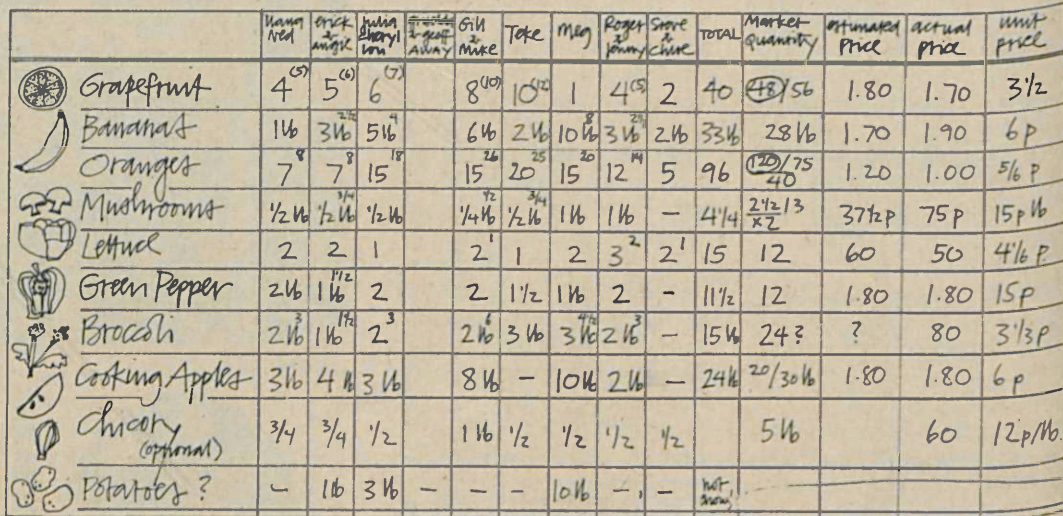 Hana Ned | erick & angie | Julia Cheryl Lou | & geoff AWAY | Gill & Mike | Teke | Meg | Roger & Jenny | Steve & Chris | TOTAL | Market Quantity | estimated Price | actual price | unit price
Grapefruit | 4 (5) | 5 (6) | 6 (7) | | 8 (10) | 10 (12) | 1 | 4 (5) | 2 | 40 | 48/56 | 1.80 | 1.70 | 3 1/2
Bananas | 1lb | 3lb 2 1/2 | 5lb 4 | | 6lb | 2lb | 10lb 8 | 3lb 2 1/2 | 2lb | 33lb | 28lb | 1.70 | 1.90 | 6p
Oranges | 7 8 | 7 8 | 15 18 | | 15 26 | 20 25 | 15 20 | 12 14 | 5 | 96 | 120/75 40 | 1.20 | 1.00 | 5/6 P
Mushrooms | 1/2 lb | 1/2 lb 3/4 | 1/2 lb | | 1/4 lb 1/2 | 1/2 lb 3/4 | 1lb | 1lb | - | 4 1/4 | 2 1/2 /3 x2 | 37 1/2 p | 75 p | 15p lb
Lettuce | 2 | 2 | 1 | | 2 1 | 1 | 2 | 3 2 | 2 1 | 15 | 12 | 60 | 50 | 4 1/6 P
Green Pepper | 2lb | 1lb 1 1/2 | 2 | | 2 | 1 1/2 | 1lb | 2 | - | 11 1/2 | 12 | 1.80 | 1.80 | 15p
Broccoli | 2lb 3 | 1lb 1 1/2 | 2 3 | | 2lb 6 | 3 lb | 3lb 4 1/2 | 2lb 3 | - | 15lb | 24? | ? | 80 | 3 1/3 P
Cooking Apples | 3lb | 4 lb | 3 lb | | 8 lb | - | 10lb | 2lb | - | 24lb | 20/30lb | 1.80 | 1.80 | 6 p
Chicory (optional) | 3/4 | 3/4 | 1/2 | | 1 lb | 1/2 | 1/2 | 1/2 | 1/2 | | 5lb | | 60 | 12p/lb.
Potatoes ? | - | 1lb | 3 lb | - | - | - | 10lb | - | - | not